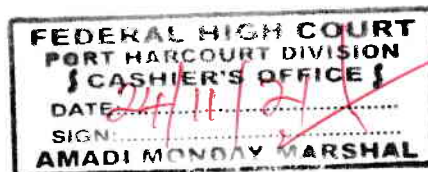 FEDERAL HIGH COURT
PORT HARCOURT DIVISION
CASHIER'S OFFICE
DATE 24/11/21
SIGN:
AMADI MONDAY MARSHAL